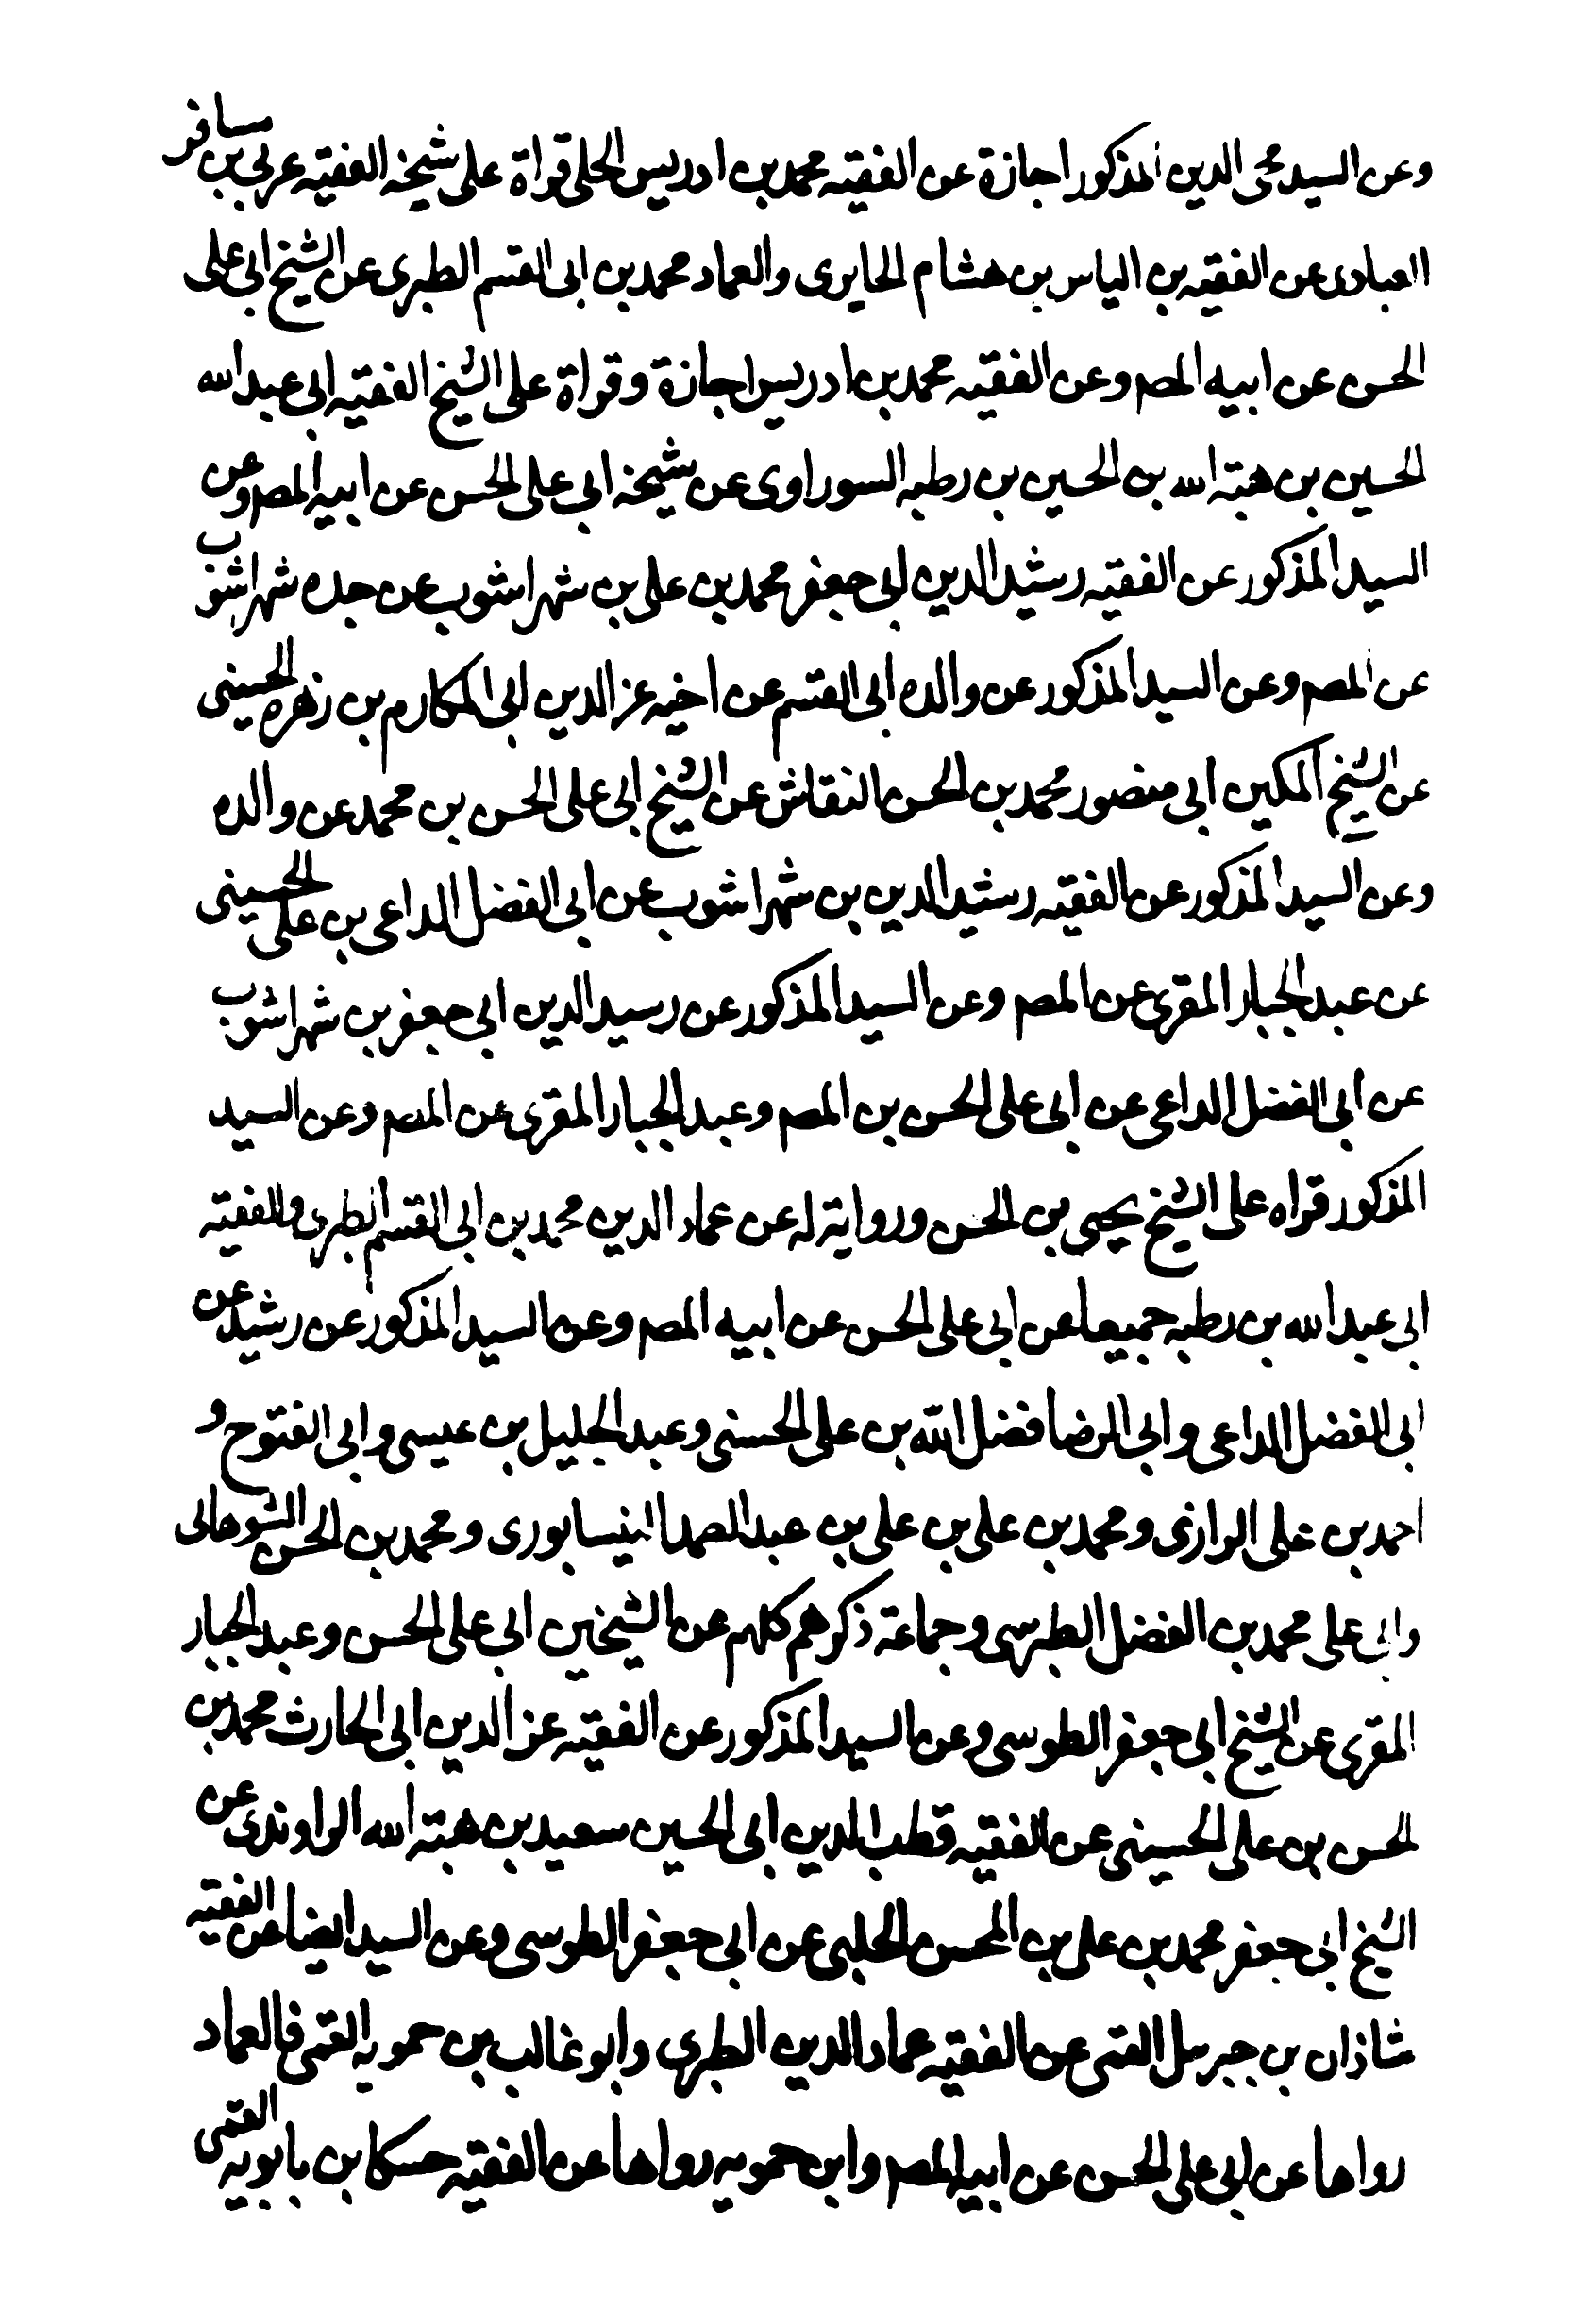 وعن السيد محى الدين المذكور اجازة عن الفقيه محمد بن ادريس الحلى قراة على شيخه الفقيه عربى بن مسافر
العبادى عن الفقيه بن الياس بن هشام الحايرى والعماد محمد بن ابى القسم الطبرى عن الشيخ ابى على
الحسن عن ابيه المصم وعن الفقيه محمد بن ادريس اجازة وقراة على الشيخ الفقيه ابى عبد الله
الحسين بن هبة الله بن الحسين بن رطبه السوراوى عن شيخه ابى على الحسن عن ابيه المصم وعن
السيد المذكور عن الفقيه رشيد الدين ابى جعفر محمد بن على بن شهراشوب عن جده شهراشوب
عن المصم وعن السيد المذكور عن والده ابى القسم عن اخيه عز الدين ابى المكارم بن زهره الحسينى
عن الشيخ المكين ابى منصور محمد بن الحسن النقاش عن الشيخ ابى على الحسن بن محمد عن والده
وعن السيد المذكور عن الفقيه رشيد الدين بن شهراشوب عن ابى الفضل الداعى بن على الحسينى
عن عبد الجبار المقرى عن المصم وعن السيد المذكور عن رسيد الدين ابى جعفر بن شهراشوب
عن ابى الفضل الداعى عن ابى على الحسن بن المصم وعبد الجبار المقرى عن المصم وعن السيد
المذكور قراه على الشيخ يحيى بن الحسن ورواية له عن عماد الدين محمد بن ابى القسم الطبرى والفقيه
ابى عبد الله بن رطبه جميعا عن ابى على الحسن عن ابيه المصم وعن السيد المذكور عن رشيد عن
ابى الفضل الداعى وابى الرضا فضل الله بن على الحسنى وعبد الجليل بن عيسى وابى الفتوح و
احمد بن على الرازى ومحمد بن على بن على بن عبد الصمد النيسابورى ومحمد بن الحسن الشوهانى
وابى على محمد بن الفضل الطبرسى وجماعة ذكرهم كلهم عن الشيخين ابى على الحسن وعبد الجبار
المقرى عن الشيخ ابى جعفر الطوسى وعن السيد المذكور عن الفقيه عز الدين ابى الحارث محمد بن
الحسن بن على الحسينى عن الفقيه قطب الدين ابى الحسين سعيد بن هبة الله الراوندى عن
الشيخ ابى جعفر محمد بن على بن المحسن الحلبى عن ابى جعفر الطوسى وعن السيد ايضا عن الفقيه
شاذان بن جبرىل القمى عن الفقيه عماد الدين الطبرى وابو غالب بن حمويه القمى فالعماد
رواها عن ابى على الحسن عن ابيه المصم وابن حمويه رواها عن الفقيه حسكا بن بابويه القمى